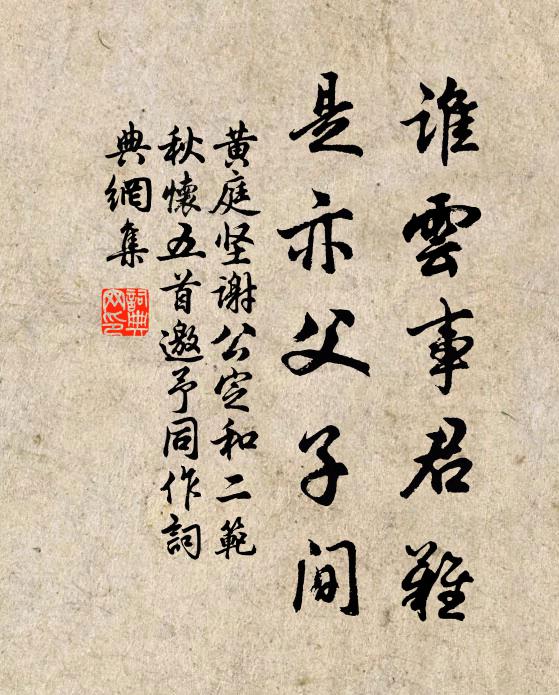 誰雲事君難
是亦父子間
黃庭坚謝公定和二範
秋懷五首邀予同作詞
典網集
詞典
网印